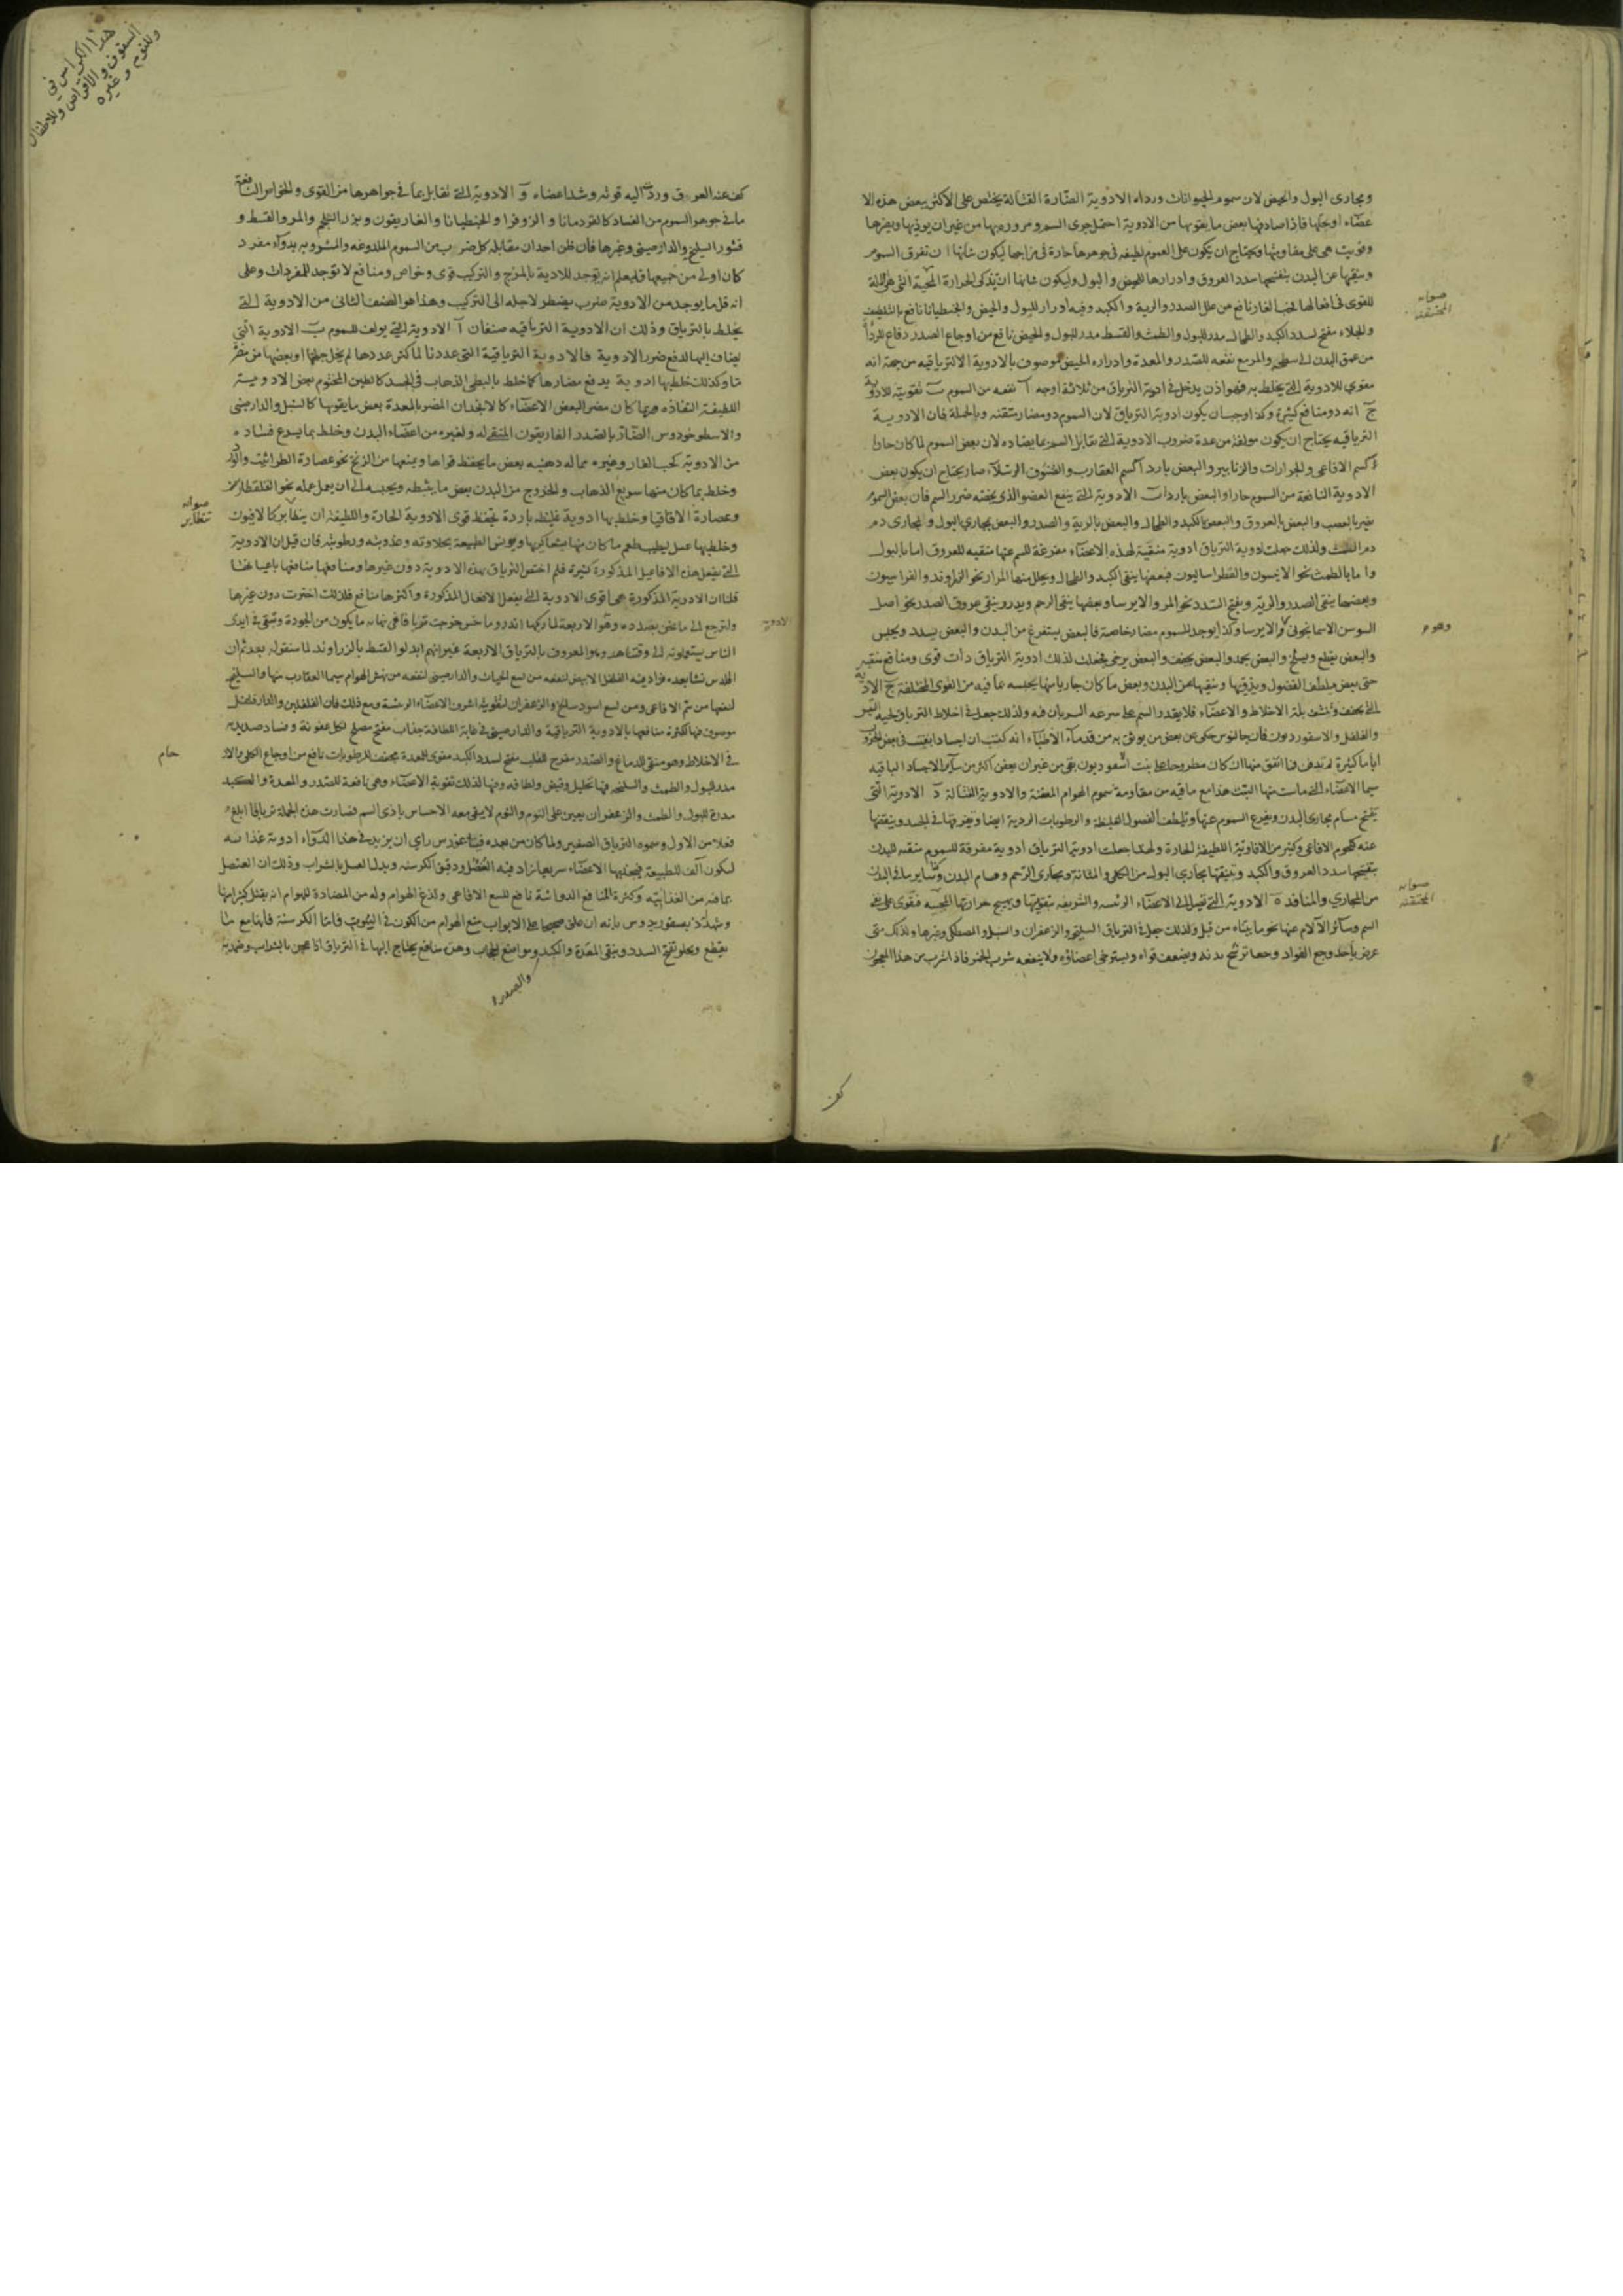 ومجارى البول والحيض لان سموم الحيوانات ورداة الادوية الضارة القتالة يختص على الاكثر ببعض هذه الا
عضاء اوبجلها فاذا صادفها بعض ما يقويها من الادوية احتمل جرى السم ومروره بها من غير ان يوذيها ويضرها
وقويت هى على مقاومتها ويحتاج ان يكون على العموم لطيفه فى جوهرها حارة فى مزاجها ليكون شانها ان تفرق السموم
وينقيها عن البدن بتفتيحها سدد العروق وادرارها للحيض والبول وليكون شانها ان تذكى الحرارة التى هى الة
للقوى فى افعالها كحب الغار نافع من علل الصدر والرية والكبد وفيه ادرار للبول والحيض والجنطيانا نافع بالتلطيف
والجلاء مفتح لسدد الكبد والطحال مدر للبول والطمث والقسط مدر للبول والحيض نافع من اوجاع الصدر دفاع
من عمق البدن الى سطحه والمر مع نفعه للصدر والمعدة وادراره الحيض موصوف بالادوية الالترياقيه من جهة انه
مقوى للادوية التى يخلط به فهو اذن يدخل فى ادوية الترياق من ثلاثة اوجه آ نفعه من السموم ب تقويته للادوية
ج انه ذو منافع كثيرة وكذا وجب ان يكون ادوية الترياق لان السموم ذو مضار متفننه وبالجملة فان الادوية
الترياقيه يحتاج ان يكون مولفة من عدة ضروب الادوية التى تقابل السم بما يضاده لان بعض السموم لما كان حارا
كسم الافاعى والجرارات والزنابير والبعض باردا كسم العقارب والرتيلاء صار يحتاج ان يكون بعض
الادوية النافعة من السموم حارا والبعض باردا ب الادوية التى ينفع العضو الذى يخصه ضرر السم فان بعض السموم
يضر بالعصب والبعض بالعروق والبعض بالكبد والطحال والبعض بالرية والصدر والبعض بمجارى البول والمجارى دم
دم الطمث ولذلك جعلت ادوية الترياق ادوية منقية لهذه الاعضاء مفرغة للسم عنها منقيه للعروق اما بالبول
واما بالطمث نحو الانيسون والفطراساليون فبعضها ينقى الكبد والطحال ويحلل منها المرار نحو الزراوند والفراسيون
وبعضها ينقى الصدر والرية ويفتح السدد نحو المر والايرسا وبعضها ينقى الرحم ويدر وينقى عروق الصدر نحو اصل
السوسن الاسمانجونى والايرسا وكذا يوجد للسموم مضار خاصة فالبعض يستفرغ من البدن والبعض يسدد ويحبس
والبعض يقطع ويسلخ والبعض يجمد والبعض يجفف والبعض يرخى فجعلت لذلك ادوية الترياق ذات قوى ومنافع
حتى بعض يلطف الفضول ويرققها وينقيها من البدن وبعض ما كان جاريا منها يحبسه بما فيه من القوى المختلفة ج الادوية
التى يجفف وينشف بلة الاخلاط والاعضاء فلا يقدر السم على سرعة السريان فيه ولذلك جعل فى اخلاط الترياق
والفلفل والاسقورديون فان جالينوس حكى عن بعض من يوثق به من قدماء الاطباء انه كتب ان اجسادا بقيت فى بعض
اياما كثيرة لم تدفن فما اتفق منها ان كان مطروحا على نبت اسقورديون بقى من غير ان يعفن اكثر من سائر الاجساد الباقيه
سيما الاعضاء التى ماست منها النبت هذا مع ما فيه من مقاومة سموم الهوام المعفنة والادوية القتالة د الادوية التى
يفتح مسام مجارى البدن ويفرغ السموم عنها ويلطف الفضول الغليظة والرطوبات الردية ايضا ويفرقها فى الجسد وينقيها
عنه كلحوم الافاعى وكثير من الافاوية اللطيفة الحارة ولهذا جعلت ادوية الترياق ادوية مفرقة للسموم منقيه للبدن
بتفتيحها سدد العروق والكبد وتنقيتها مجارى البول من الكلى والمثانة ومجارى الرحم ومسام البدن وساير ما فى البدن
من المجارى والمنافذ ه الادوية التى تميل الى الاعضاء الرئيسه والشريفه بتقويتها ويهيج حرارتها فتقوى على دفع
السم وسائر الآلام عنها نحو ما بيناه من قبل ولذلك جعل فى الترياق السليخه والزعفران والسنبل والمصطكى وغيرها ولذلك متى
عرض باحد وجع الفواد وحما ترشح بدنه ويضعف قواه ويسترخى اعضاؤه ولا ينفعه شرب الخمر فاذا شرب من هذا المعجون
صوابه
وهو م
صوابه
كف
هذا الكراس فى
السفوف والاقراص وللاطفال
وللنوم وغيره
كف عنه العرق وردت اليه قوته وشد اعضاءه و الادوية التى تقابل بما فى جواهرها من القوى والخواص النافعة
ما فى جوهر السموم من الفساد كالقردمانا والزوفرا والجنطيانا والغاريقون وبزر السلجم والمر والقسط و
قشور السليخه والدارصينى وغيرها فان ظن احد ان مقابلة كل ضرب من السموم الملدوغه والمشروبه بدواء مفرد
كان اولى من جميعها فليعلم انه يوجد للادوية بالمزج والتركيب قوى وخواص ومنافع لا توجد للمفردات وعلى
انه قل ما يوجد من الادوية ضرب يضطر لاجله الى التركيب وهذا هو الصنف الثانى من الادوية التى
يخلط بالترياق وذلك ان الادوية الترياقيه صنفان آ الادوية التى يولف للسموم ب الادوية التى
يضاف اليها لدفع ضرر الادوية فالادوية الترياقية التى عددنا لما كثر عددها لم يخل جلها او بعضها من مضر
ما وكذلك خلط بها ادوية يدفع مضارها كما خلط بالبطى الذهاب فى الجسد كالطين المختوم بعض الادوية
اللطيفة النفاذه وربما كان مضر البعض الاعضاء كالانجدان المضر بالمعدة بعض ما يقويها كالسنبل والدارصينى
والاسطوخودوس الضار بالصدر الغاريقون المنقى له ولغيره من اعضاء البدن وخلط بما يسرع فساده
من الادوية كحب الغار وغيره مما له دهنيه بعض ما يحفظ قواها ويمنعها من الزنخ نحو عصارة الطراثيث
وخلط بما كان منها سريع الذهاب والخروج من البدن بعض ما يثبطه ويحبسه الى ان يعمل عمله نحو القلقطار
وعصارة الاقاقيا وخلط بها ادوية غليظه باردة يحفظ قوى الادوية الحارة واللطيفة ان يتطاير كالافيون
وخلط بها عسل ليطيب طعم ما كان منها بشعا كريها ويونس الطبيعة بحلاوته وعذوبته ورطوبته فان قيل ان الادوية
التى يفعل هذه الافاعيل المذكورة كثيرة فلم اختص الترياق بهذه الادوية دون غيرها ومنافعها منافعها باعيانها
قلنا ان الادوية المذكورة هى اقوى الادوية التى يفعل الافعال المذكورة واكثرها منافع فلذلك اختيرت دون غيرها
ولنرجع الى ما نحن بصدده وهو الاربعة لما ركبها اندروماخس خرجت ترياقا فى نهاية ما يكون من الجودة وبقى فى ايدى
الناس يستعملونه الى وقتنا هذا وهو المعروف بالترياق الاربعة غير انهم ابدلوا القسط بالزراوند لما سنقوله بعد ثم ان
اقليدس نشا بعده فزاد فيه الفلفل الابيض لنفعه من لسع الحيات والدارصينى لنفعه من نهش الهوام سيما العقارب منها والسليخه
لنفعها من سم الافاعى ومن لسع اسود سالخ والزعفران لتقويته اشرف الاعضاء الرئيسة ومع ذلك فان الفلفلين والدارفلفل
موصوفه فيها لكثرة منافعها بالادوية الترياقية والدارصينى فى غاية اللطافة جذاب مفتح مصلح لكل عفونة وفساد صديديه
فى الاخلاط وهو منقى للدماغ والصدر مفرح للقلب مفتح لسدد الكبد مقوى للمعدة مجفف للرطوبات نافع من اوجاع الكلى والار
مدر للبول والطمث والسليخه فيها تحليل وقبض ولطافه وفيها لذلك تقوية الاعضاء وهى نافعة للصدر والمعدة والكبد
مدرة للبول والطمث والزعفران يعين على النوم والنوم لا يبقى معه الاحساس باذى السم فصارت هذه الجملة ترياقا ابلغ
فعلا من الاول وسموه الترياق الصغير ولما كان من بعده فيثاغورس راى ان يزيد فى هذا الدواء ادوية غذائيه
ليكون آلف للطبيعة فيجذبها الاعضاء سريعا زاد فيه العنصل ودقيق الكرسنه وبدل العسل بالشراب وذلك ان العنصل
بما فيه من الغذائيه وكثرة المنافع الدوائية نافع للسع الافاعى ولذغ الهوام وله من المضادة للهوام انه يقتل كثيرا منها
وشهد ديسقوريدوس بانه ان علق صحيحا على الابواب منع الهوام من الكون فى البيوت فاما الكرسنة فانها مع ما
يقطع ويجلو يفتح السدد وينقى المعدة والكبد ومواضع الحجاب وهذه منافع يحتاج اليها فى الترياق اذا عجن بالشراب وضمد به
والصدر
صوابه
تتطاير
حام
الادوية